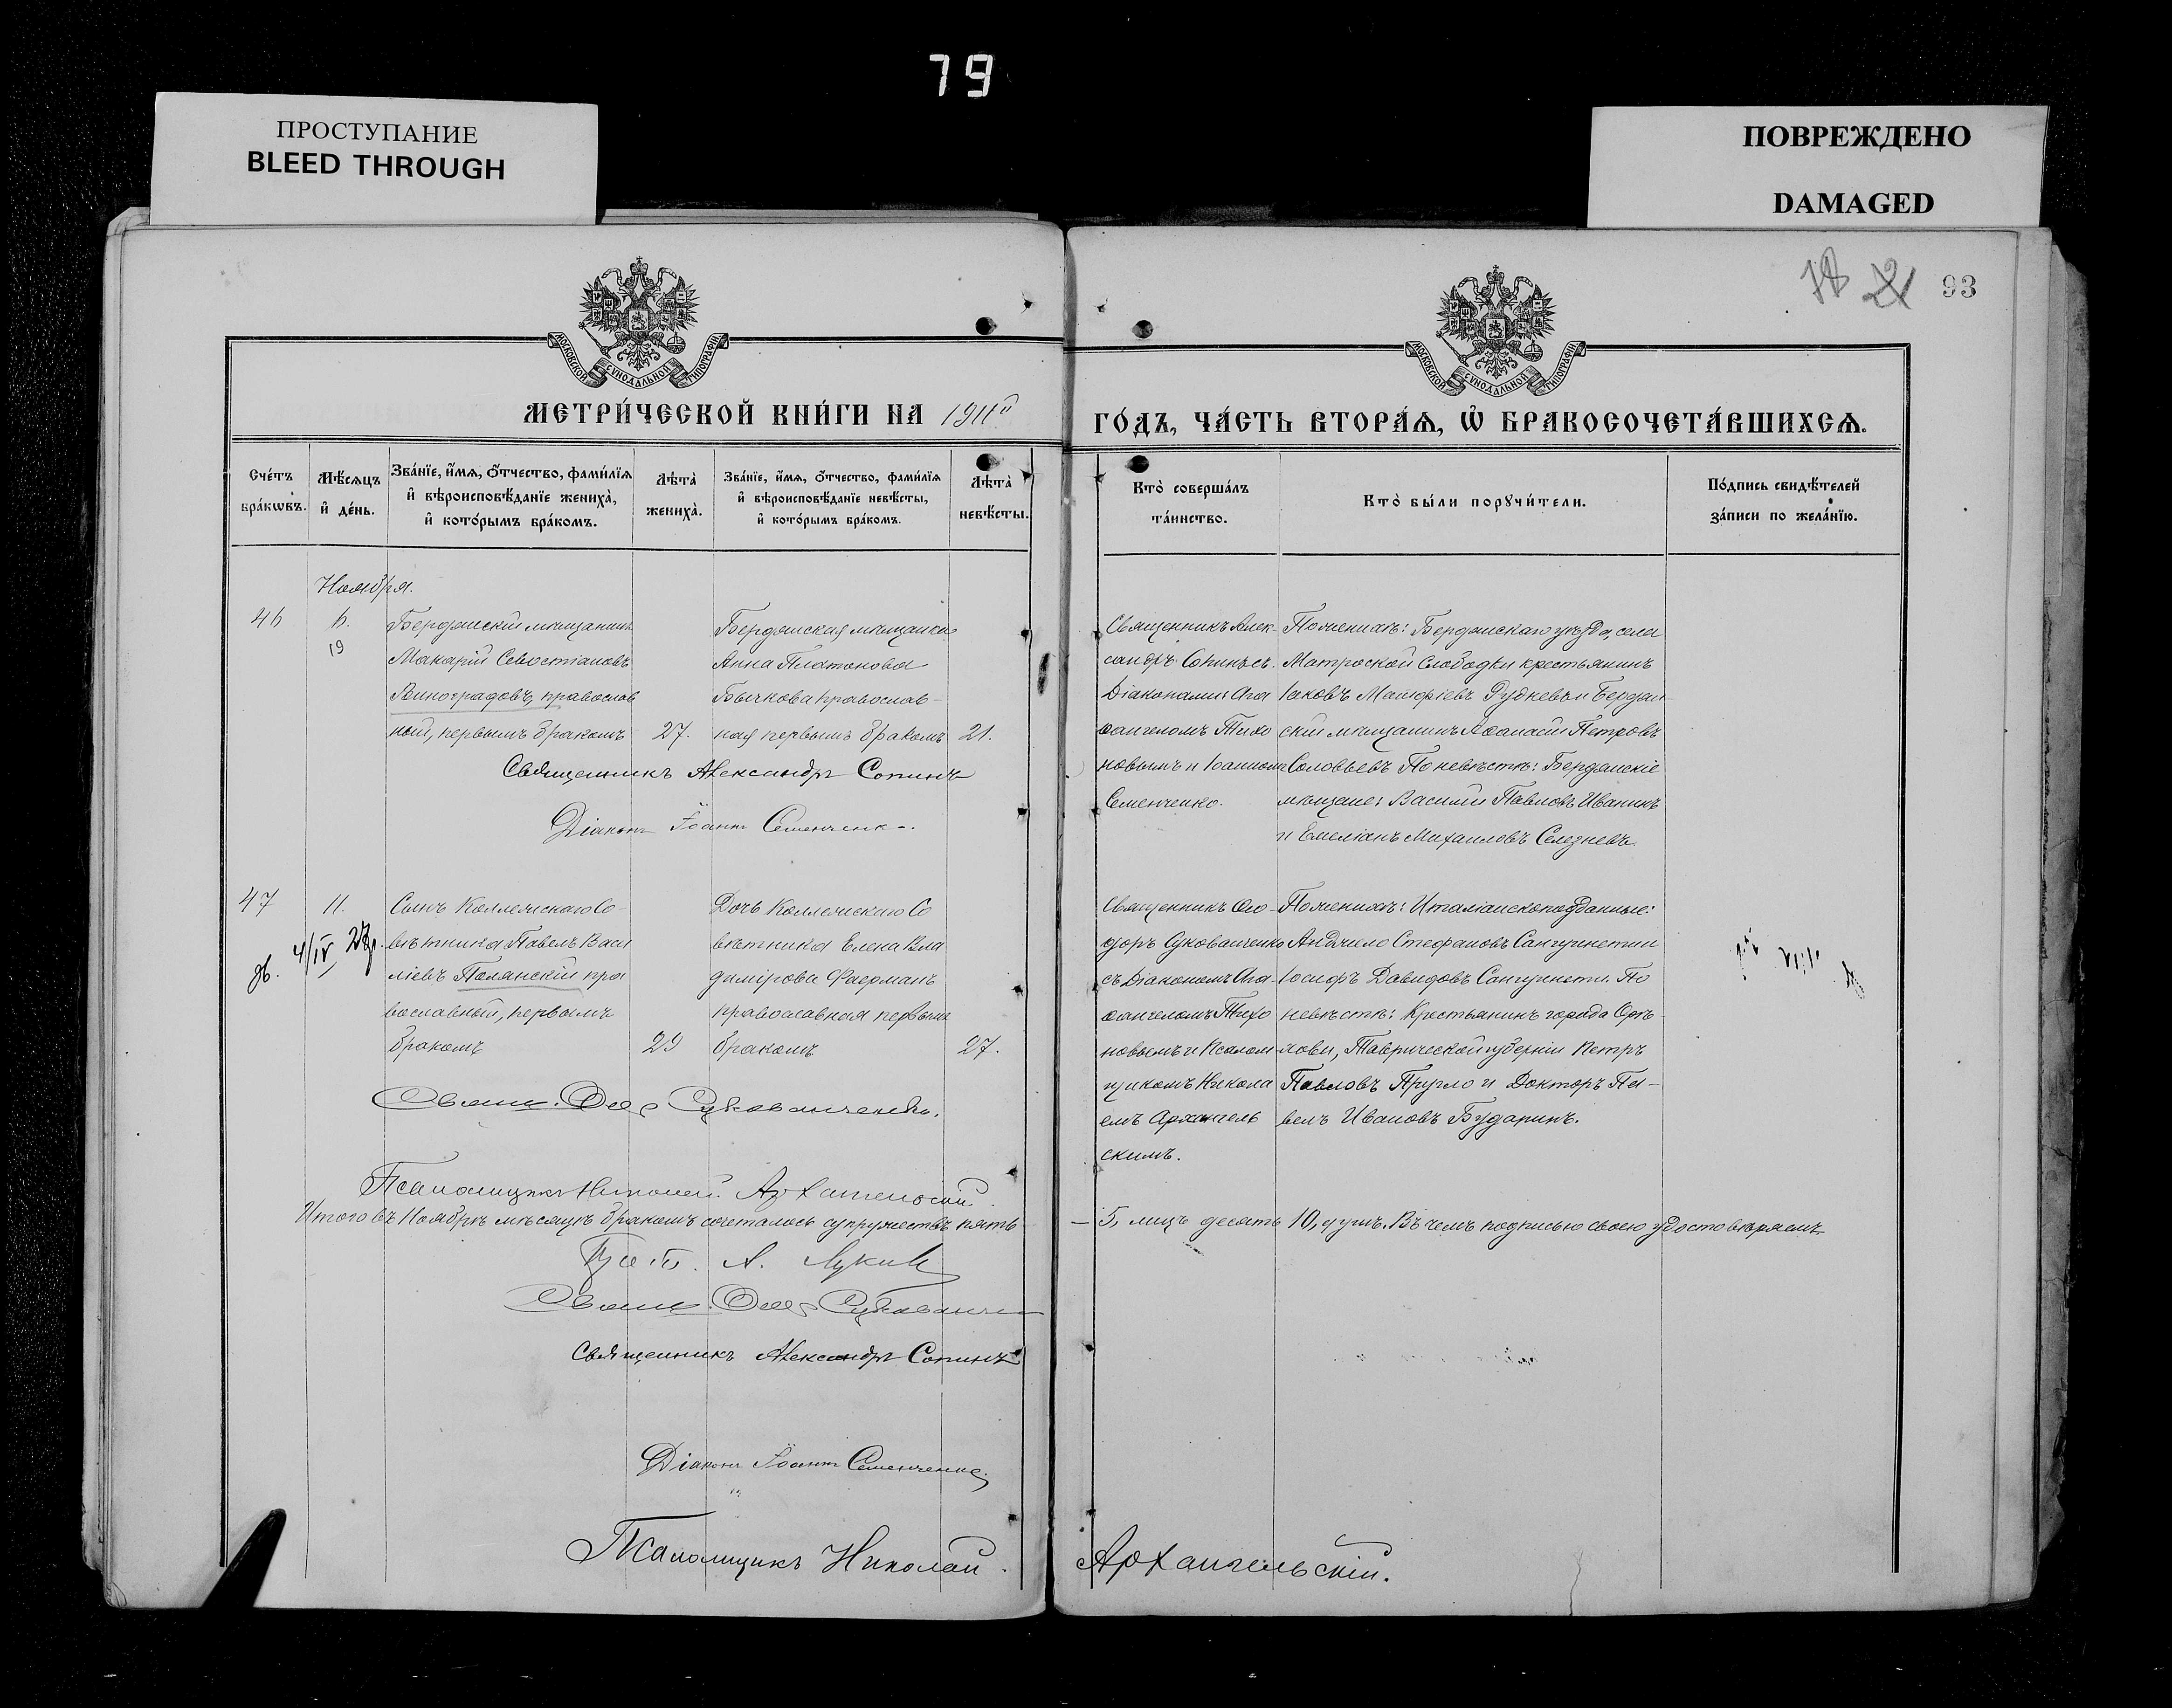 79
ПРОСТУПАНИЕ
BLEED THROUGH
ПОВРЕЖДЕНО
DAMAGED
93
МОСКОВСКОЙ СѴНОДАЛЬНОЙ ТИПОГРАФІИ
МОСКОВСКОЙ СѴНОДАЛЬНОЙ ТИПОГРАФІИ
МЕТРИ́ЧЕСКОЙ КНИ́ГИ НА 1911й
ГО́ДЪ, ЧА́СТЬ ВТОРА́Ѧ, Ѽ БРАКОСОЧЕТА́ВШИХСѦ.
Сче́тъ бра́кѡвъ.
Мѣ́сѧцъ и҆ де́нь.
Зва́нїе, и҆́мѧ, ѻ҆́тчество, фами́лїѧ и҆ вѣроисповѣ́данїе жениха̀, и҆ кото́рымъ бра́комъ.
Лѣ́та̀ жениха̀.
Зва́нїе, и҆́мѧ, ѻ҆́тчество, фами́лїѧ и҆ вѣроисповѣ́данїе невѣ́сты, и҆ кото́рымъ бра́комъ.
Лѣ́та̀ невѣ́сты.
Кто̀ соверша́лъ та́инство.
Кто̀ бы́ли порꙋчи́тели.
По́дпись свидѣ́телей за́писи по жела́нїю.
Ноября.
46
6.
19
Бердянскій мѣщанинъ
Макарій Севостіановъ
Виноградовъ, православ
ный, первымъ бракомъ
27.
Бердянская мѣщанка
Анна Платонова
Бычкова православ-
ная первымъ бракомъ
21.
Священникъ Алек-
сандръ Сопинъ съ
Діаконами: Ага
ѳангеломъ Тихо
новымъ и Іоанномъ
Семенченко.
По женихѣ: Бердянскаго уѣзда, села
Матроской Слободки крестьянинъ
Іаковъ Матфіевъ Рудкевъ и Бердян-
скій мѣщанинъ Аѳанасій Петровъ
Соловьевъ По невѣстѣ: Бердянскіе
мѣщане: Василій Павловъ Иванинъ
и Емеліанъ Михаиловъ Селезневъ.
Священникъ Александръ Сопинъ
Діаконъ Іоаннъ Семенченко.
47
11.
4/IV
Сынъ Коллежскаго Со-
вѣтника Павелъ Васи
ліевъ Полянскій пра
вославный, первымъ
бракомъ
29
Дочь Коллежскаго Со
вѣтника Елена Вла
димірова Фаерманъ
православная первымъ
бракомъ
27.
Священникъ Ѳео-
доръ Сукованченко
съ Діакономъ Ага-
ѳангеломъ Тихо
новымъ и Псалом-
щикомъ Никола
емъ Архангель
скимъ.
По женихѣ: Италіанскоподданные:
Анджело Стефановъ Сангуинетти и
Іосифъ Давидовъ Сангуинети. По
невѣстѣ: Крестьянинъ города Орѣ-
хова, Таврической губерніи Петръ
Павловъ Пругло и Докторъ Па-
велъ Ивановъ Бударинъ.
Свящ. Ѳеод. Сукованченко.
Псаломщикъ Николай Архангельскій
Итого въ Ноябрѣ мѣсяцѣ бракомъ сочеталось супружествъ пять
- 5, лицъ десять 10, душъ. Въ чемъ подписью своею удостовѣряемъ
Прот. А. Лукин
Свящ. Ѳеод. Сукованченко
Священникъ Александръ Сопинъ
Діаконъ Іоаннъ Семенченко.
Псаломщикъ Николай Архангельскій.